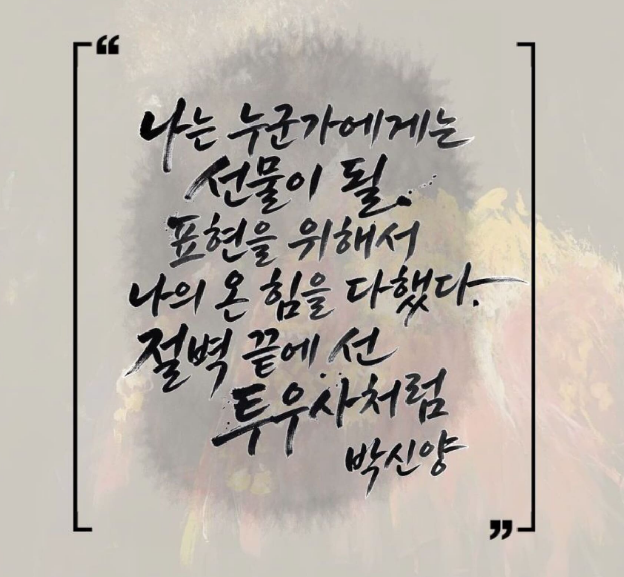 “
나는 누군가에게는
선물이 될
표현을 위해서
나의 온 힘을 다했다.
절벽 끝에 선
투우사처럼
박신양
”